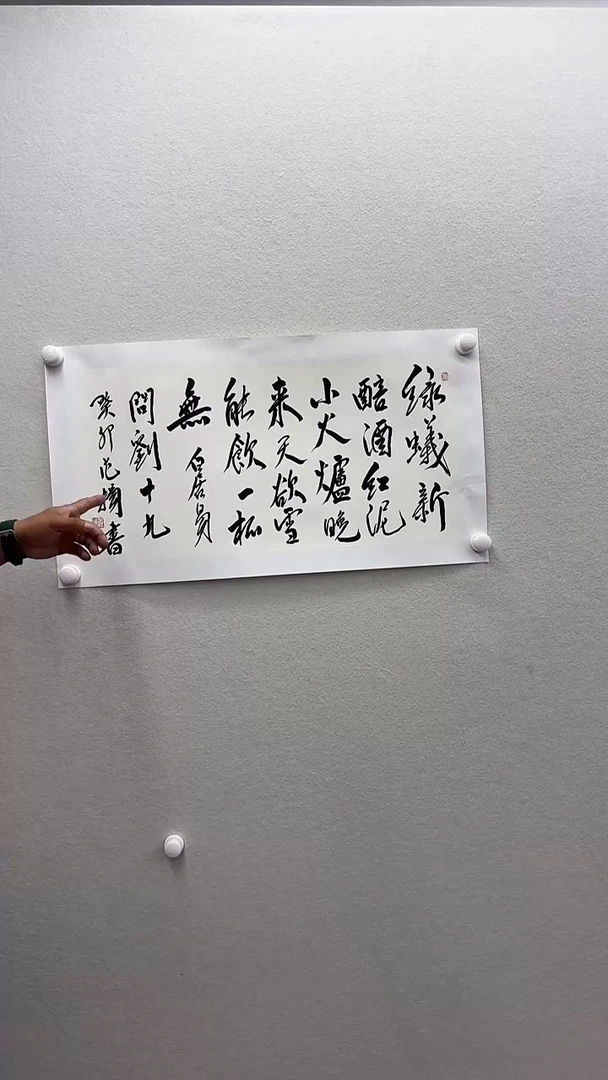 绿蟻新
醅酒红泥
小火爐晚
来天欲雪
能飲一杯
無 白居易
問劉十九
癸卯范書